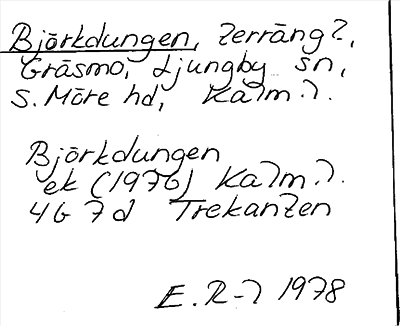 Björkdungen, terrängl.,
Gräsmo, Ljungby sn,
S. Möre hd, Kalm. l.
Björkdungen
ek (1976) Kalm. l.
4G 7d Trekanten
E. R-l 1978